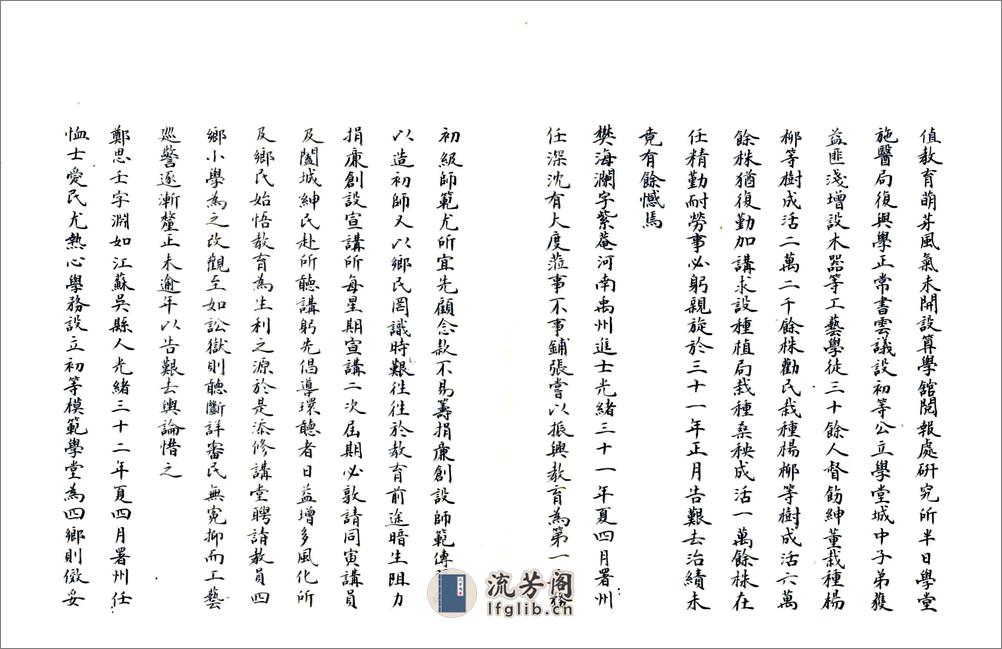 值教育萌芽風氣未開設算學舘閱報處研究所半日學堂
施醫局復與學正常書雲議設初等公立學堂城中子弟獲
益匪淺增設木器等工藝學徒三十餘人督飭紳董栽種楊
柳等樹成活二萬二千餘株勸民栽種楊柳等樹成活六萬
餘株猶復勤加講求設種植局栽種桑秧成活一萬餘株在
任精勤耐勞事必躬親旋於三十一年正月告艱去治績未
竟有餘憾焉
樊海瀾字紫菴河南禹州進士光緒三十一年夏四月署州
任深沈有大度蒞事不事鋪張嘗以振興教育為第一務
初級師範尤所宜先顧念款不易籌捐廉創設師範傳
以造初師又以鄉民罔識時艱往往於教育前途暗生阻力
捐廉創設宣講所每星期宣講二次屆期必敦請同寅講員
及闔城紳民赴所聽講躬先倡導環聽者日益增多風化所
及鄉民始悟教育為生利之源於是添修講堂聘請教員四
鄉小學為之改觀至如訟獄則聽斷詳審民無冤抑而工藝
巡警逐漸釐正未逾年以告艱去輿論惜之
鄭思壬字淵如江蘇吳縣人光緒三十二年夏四月署州任
恤士愛民尤熱心學務設立初等模範學堂為四鄉則儆妥
流芳阁
lfglib.cn